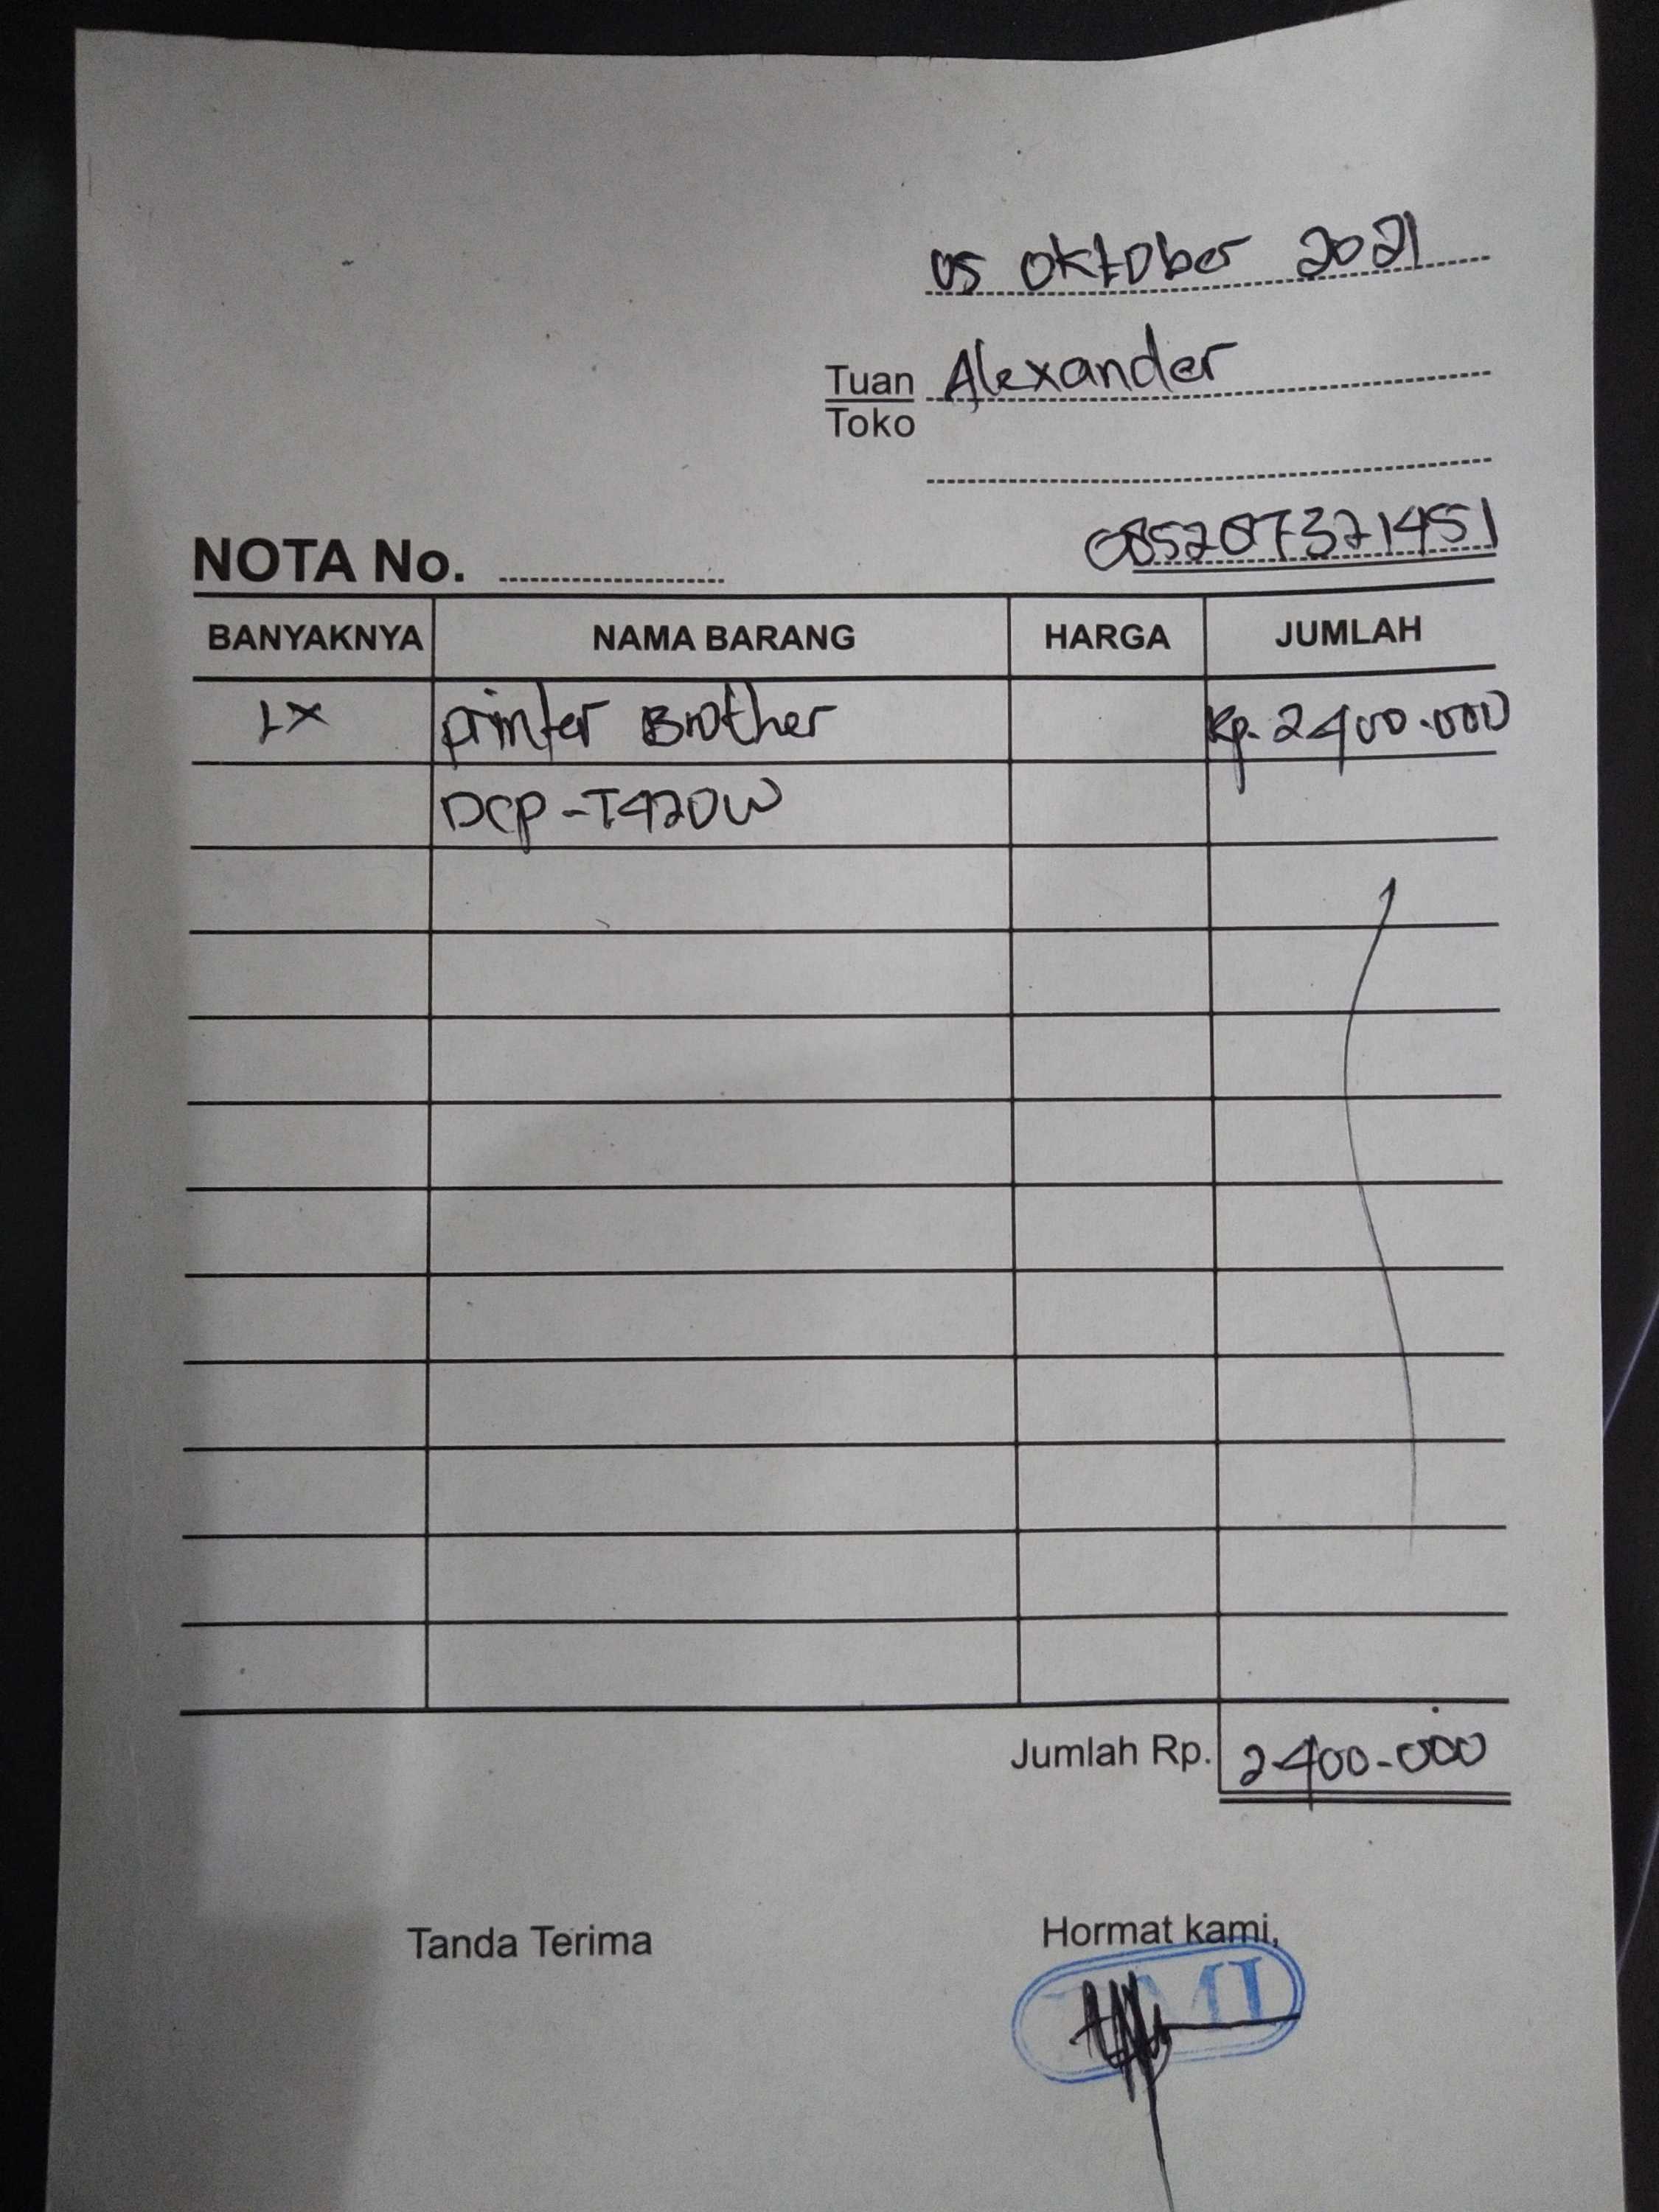 05 Oktober 2021
Tuan Alexander
Toko
085207321451
NOTA No.
BANYAKNYA NAMA BARANG HARGA JUMLAH
1x Printer Brother Rp. 2400.000
DCP-T420W
Jumlah Rp. 2400.000
Tanda Terima Hormat kami,